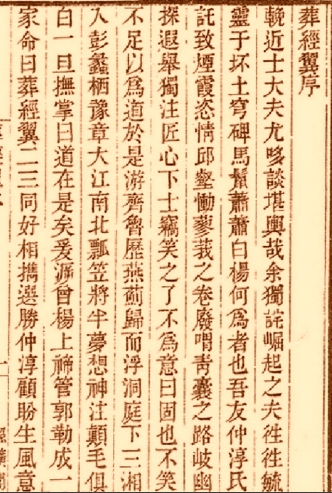 葬經翼序
輓近士大夫尤哆談堪輿哉余獨詫崛起之夫徃徃毓
靈于坏土穹碑馬鬣蕭蕭白楊何爲者也吾友仲淳氏
託致煙霞恣情邱壑慟蓼莪之卷廢唶靑囊之路岐幽
探遐舉獨注匠心下士竊笑之了不爲意曰固也不笑
不足以爲道於是游齊魯歷燕薊歸而浮洞庭下三湘
入彭蠡栖豫章大江南北瓢笠將半夢想神注顚毛俱
白一旦撫掌曰道在是矣爰溯曾楊上禘管郭勒成一
家命曰葬經翼二三同好相攜選勝仲淳顧盼生風意